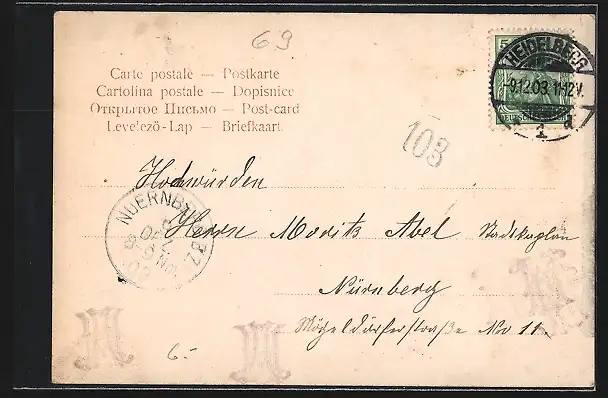 69
Carte postale — Postkarte
Cartolina postale — Dopisnice
Открытое Письмо — Post-card
Levelező-Lap — Briefkaart
HEIDELBERG
9.12.03.11-12V.
1 d.
103
Hochwürden
Herrn Moritz Abel Stadtkaplan
NUERNBERG 2 BZ
DEZ
8-9 Nm
03
Nürnberg
Mögeldörferstraße No 11.
6.-